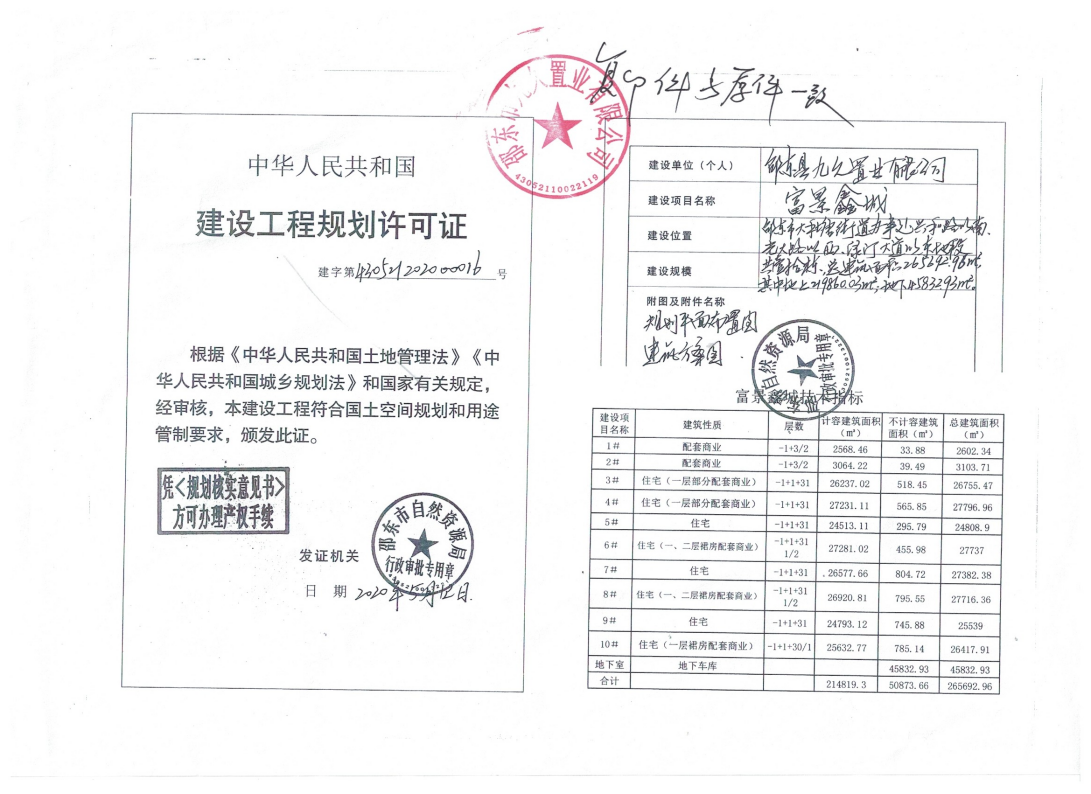 复印件与原件一致
邵东市九久置业有限公司
43052110022119
中华人民共和国
建设工程规划许可证
建字第430521202000016号
根据《中华人民共和国土地管理法》《中
华人民共和国城乡规划法》和国家有关规定,
经审核,本建设工程符合国土空间规划和用途
管制要求,颁发此证。
凭<规划核实意见书>
方可办理产权手续
发证机关
邵东市自然资源局
行政审批专用章
日 期 2020年5月12日.
建设单位(个人) 邵东县九久置业有限公司
建设项目名称 富景鑫城
建设位置 邵东市大禾塘街道办事处 兴和路以南、
光大路以西、绿汀大道以东地段
建设规模 共壹拾栋、总建筑面积265692.96㎡,
其中地上219860.03㎡,地下45832.93㎡。
附图及附件名称
规划平面布置图
建筑方案图
自然资源局
行政审批专用章
富景鑫城技术指标
建设项目名称 建筑性质 层数 计容建筑面积(㎡) 不计容建筑面积(㎡) 总建筑面积(㎡)
1# 配套商业 -1+3/2 2568.46 33.88 2602.34
2# 配套商业 -1+3/2 3064.22 39.49 3103.71
3# 住宅(一层部分配套商业) -1+1+31 26237.02 518.45 26755.47
4# 住宅(一层部分配套商业) -1+1+31 27231.11 565.85 27796.96
5# 住宅 -1+1+31 24513.11 295.79 24808.9
6# 住宅(一、二层裙房配套商业) -1+1+31 1/2 27281.02 455.98 27737
7# 住宅 -1+1+31 26577.66 804.72 27382.38
8# 住宅(一、二层裙房配套商业) -1+1+31 1/2 26920.81 795.55 27716.36
9# 住宅 -1+1+31 24793.12 745.88 25539
10# 住宅(一层裙房配套商业) -1+1+30/1 25632.77 785.14 26417.91
地下室 地下车库 45832.93 45832.93
合计 214819.3 50873.66 265692.96